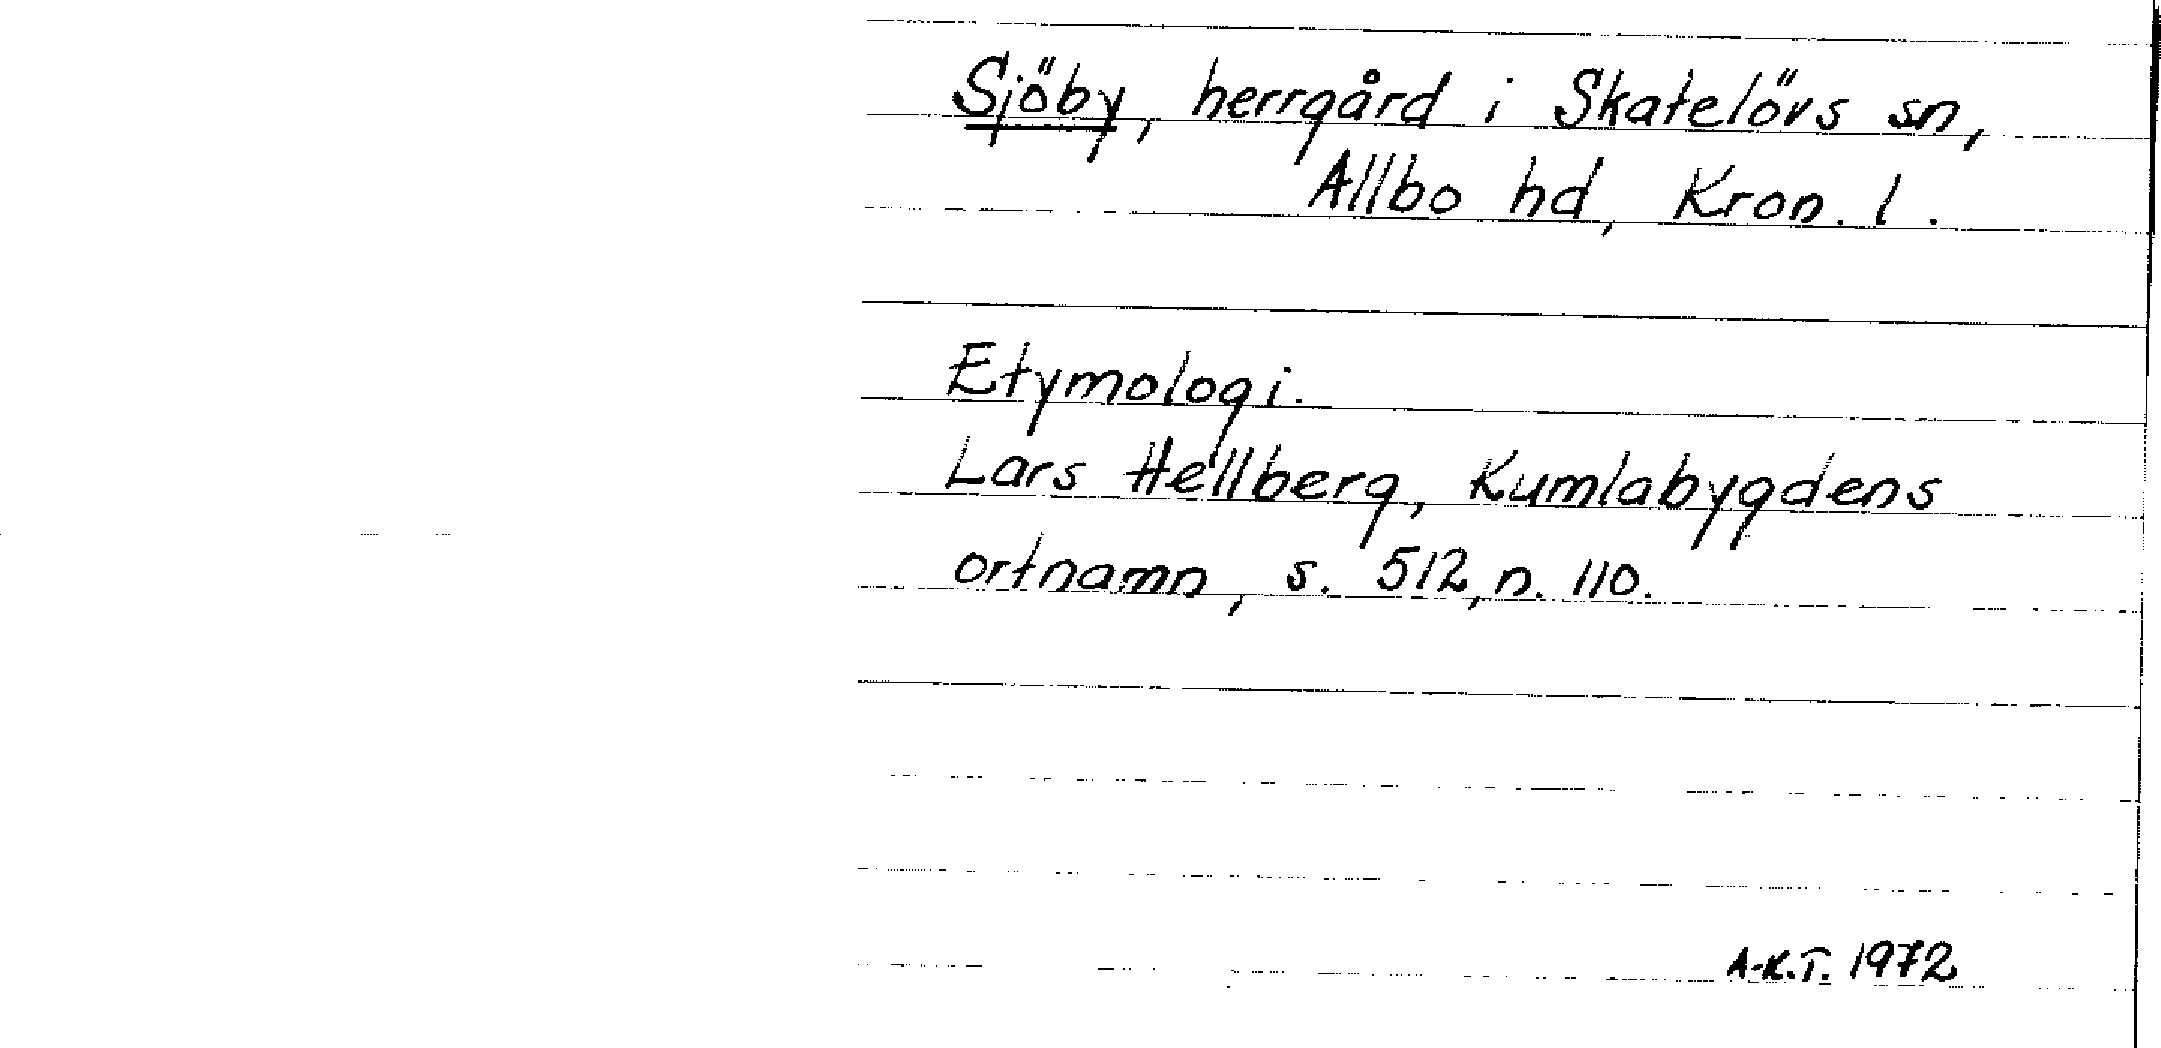 Sjöby, herrgård i Skatelövs sn,
Allbo hd, Kron. l.
Etymologi.
Lars Hellberg, Kumlabygdens
ortnamn, s. 512, n. 110.
A-K.T. 1972